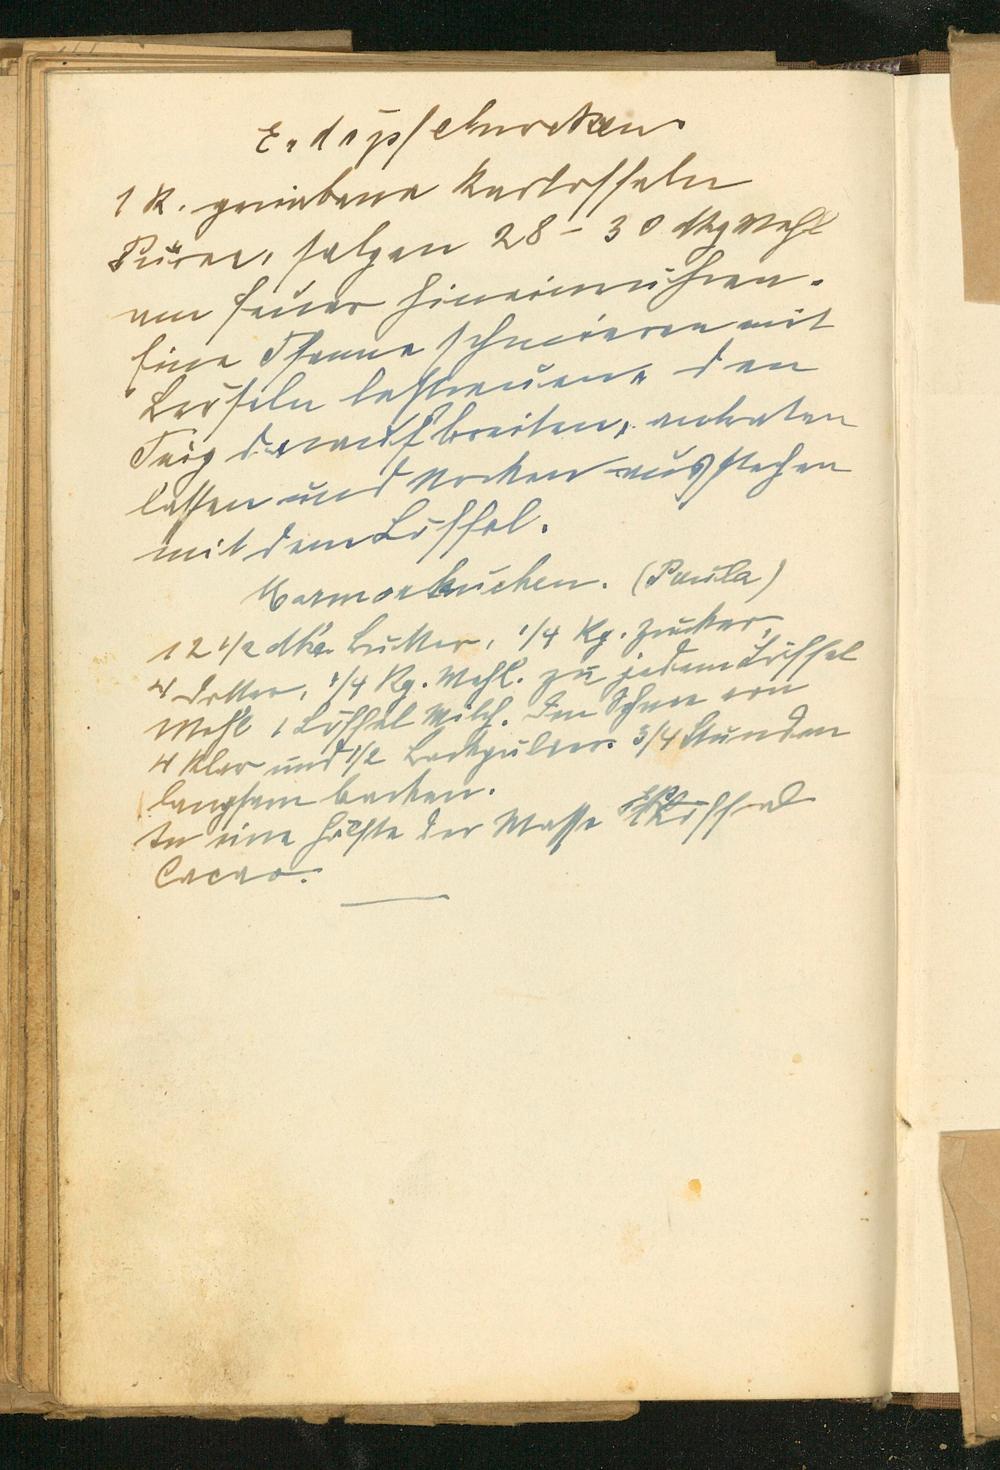 Erdäpfelnocken
1 K. geriebene Kartoffeln
Püree, salzen 28 – 30 dkg Mehl
am Feuer hineinrühren.
Eine Pfanne schmieren mit
Bröseln bestreuen, den
Teig daraufbreiten, anbraten
lassen und Nocken ausstechen
mit dem Löffel.
Marmorkuchen. (Paula)
12 1/2 dkg Butter, 1/4 Kg. Zucker,
4 Dotter, 1/4 Kg. Mehl. zu jedem Löffel
Mehl 1 Löffel Milch. Den Schnee von
4 Klar und 1/2 Backpulver. 3/4 Stunden
langsam backen.
In eine Hälfte der Masse Löffel
Cacao.